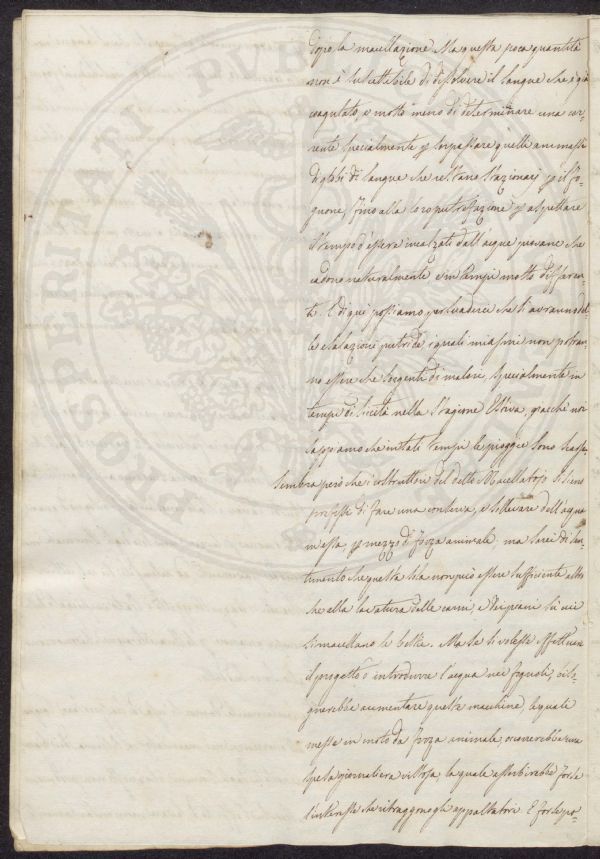 dopo la macellazione. Ma questa poca quantità
non è suscettibile di dissolvere il sangue che è già
coagulato, e molto meno di determinare una cor-
rente specialmente p sorpassare quelle ammassi
di globi di sangue che restano stazionarj p il fo-
gnone, fino alla loro putrefazione p aspettare
il tempo d'essere incalzati dall'acque piovane che
cadono naturalmente e in tempi molto differen-
ti. E di qui possiamo persuaderci che si avranno del
le esalazioni putride, i quali miasmi non potran-
no essere che sorgenti di malori, specialmente in
tempi di siccità nella stagione Estiva, giacchè noi
sappiamo che in tale tempi le pioggie sono scarse.
Sembra però che i costruttori del detto Macellatojo si sieno
prefisse di fare una conserva, e sollevare dell'acqua
in essa, p mezzo di forza animale, ma sarei di sen-
timento che questa sola non può essere sufficiente altro
che alla lavatura delle carni, e dei piani su cui
si macellano le bestie. Ma se si volesse effettuare
il progetto d'introdurre l'acqua nei fognoli, biso-
gnerebbe aumentare queste macchine, le quale
messe in moto da forza animale, occorrerebbe una
spesa giornaliera vistosa, la quale assorbirebbe forse
l'interesse che ritraggono gli appaltatori. E forse po-
PROSPERITATI PUBLICAE